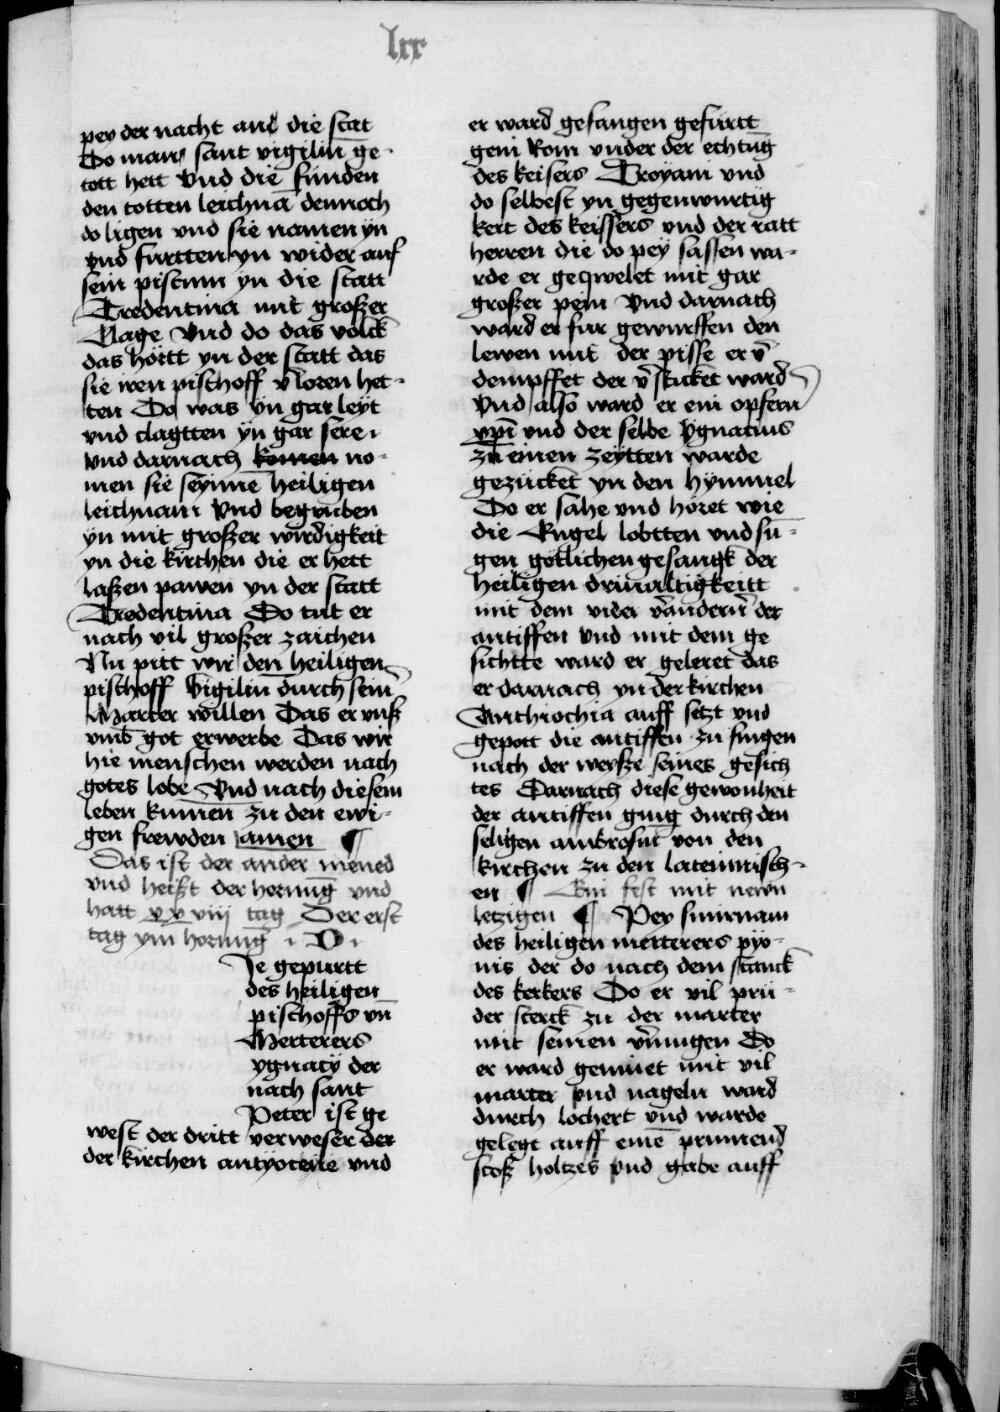 lxx
pey der nacht and die stat
Do man sant vigilin ge-
tott hett Vnd die funden
den totten leichnā dennoch
do ligen vnd sie namen yn
vnd furtten yn wider auf
sein pistum yn die statt
Tredentina mit großer
Klage Vnd do das volck
das hortt yn der statt das
sie iren pischoff v̄loren het-
ten Do was yn gar leyt
vnd clagtten yn gar sere
vnd darnach komen no-
men sie seyinē heiligen
leichnam Vnd begruben
yn mit großer wirdigkeit
yn die kirchen die er hett
laßen pawen yn der statt
Tredentina Do tut er
nach vil großer zaichen
Nu pitt wir den heiligen
pischoff Vigiliū durch sein
Marter willen Das er vnß
vmb got erwerbe Das wir
hie menschen werden nach
gotes lobe Vnd nach diesem
leben kumen zu den ewi-
gen frewden amen ¶
Das ist der ander mened
vnd heißt der hornūg vnd
hatt xxviij tag Der erst
tag ym hornūg D
Je gepurtt
des heiligen
pischoffs vn̄
Merterers
ygnacÿ der
nach sant
Peter ist ge
west der dritt verweser der
der kirchen antyoceye vnd
er ward gefangen gefurtt
gein Rom vnder der echtūg
des keisers Troyani vnd
do selbest yn gegenwurtig
keit des keissers vnd der ratt
herren die do pey sassen wa-
rde er geqwelet mit gar
großer pein Vnd darnach
ward er fur geworffen den
lewen mit der pisse er v̄
dempffet der v̄sticket ward
Vnd also ward er ein opfern
xp̄i vnd der selbe Ygnacius
zu einen zeytten warde
gezucket yn den hymmel
Do er sahe vnd horet wie
die Engel lobtten vnd sū-
gen gotlichen gesangk der
heiligen driualtigkeitt
mit dem vider v̄andern der
antiffen Vnd mit dem ge
sichtte ward er geleret das
er darnach yn der kirchen
Anthiochia auff setzt vnd
gepott die antiffen zu singen
nach der weysze seines gesich
tes Darnach diese gewonheit
der antiffen ging durch den
seligen ambrosiu von den
kirchen zu den lateinnisch-
en ¶ Ein fest mit newn
letzigen ¶ Pey smirnam
des heiligen metterers pyo-
nis der do nach dem stanck
des kerkers Do er vil prü-
der sterck zu der marter
mit seinen v̄mugen Do
er ward gemuet mit vil
marter vnd nageln ward
durch lochert vnd warde
gelegt auff einē prinnend
stoß holtzes vnd gabe auff